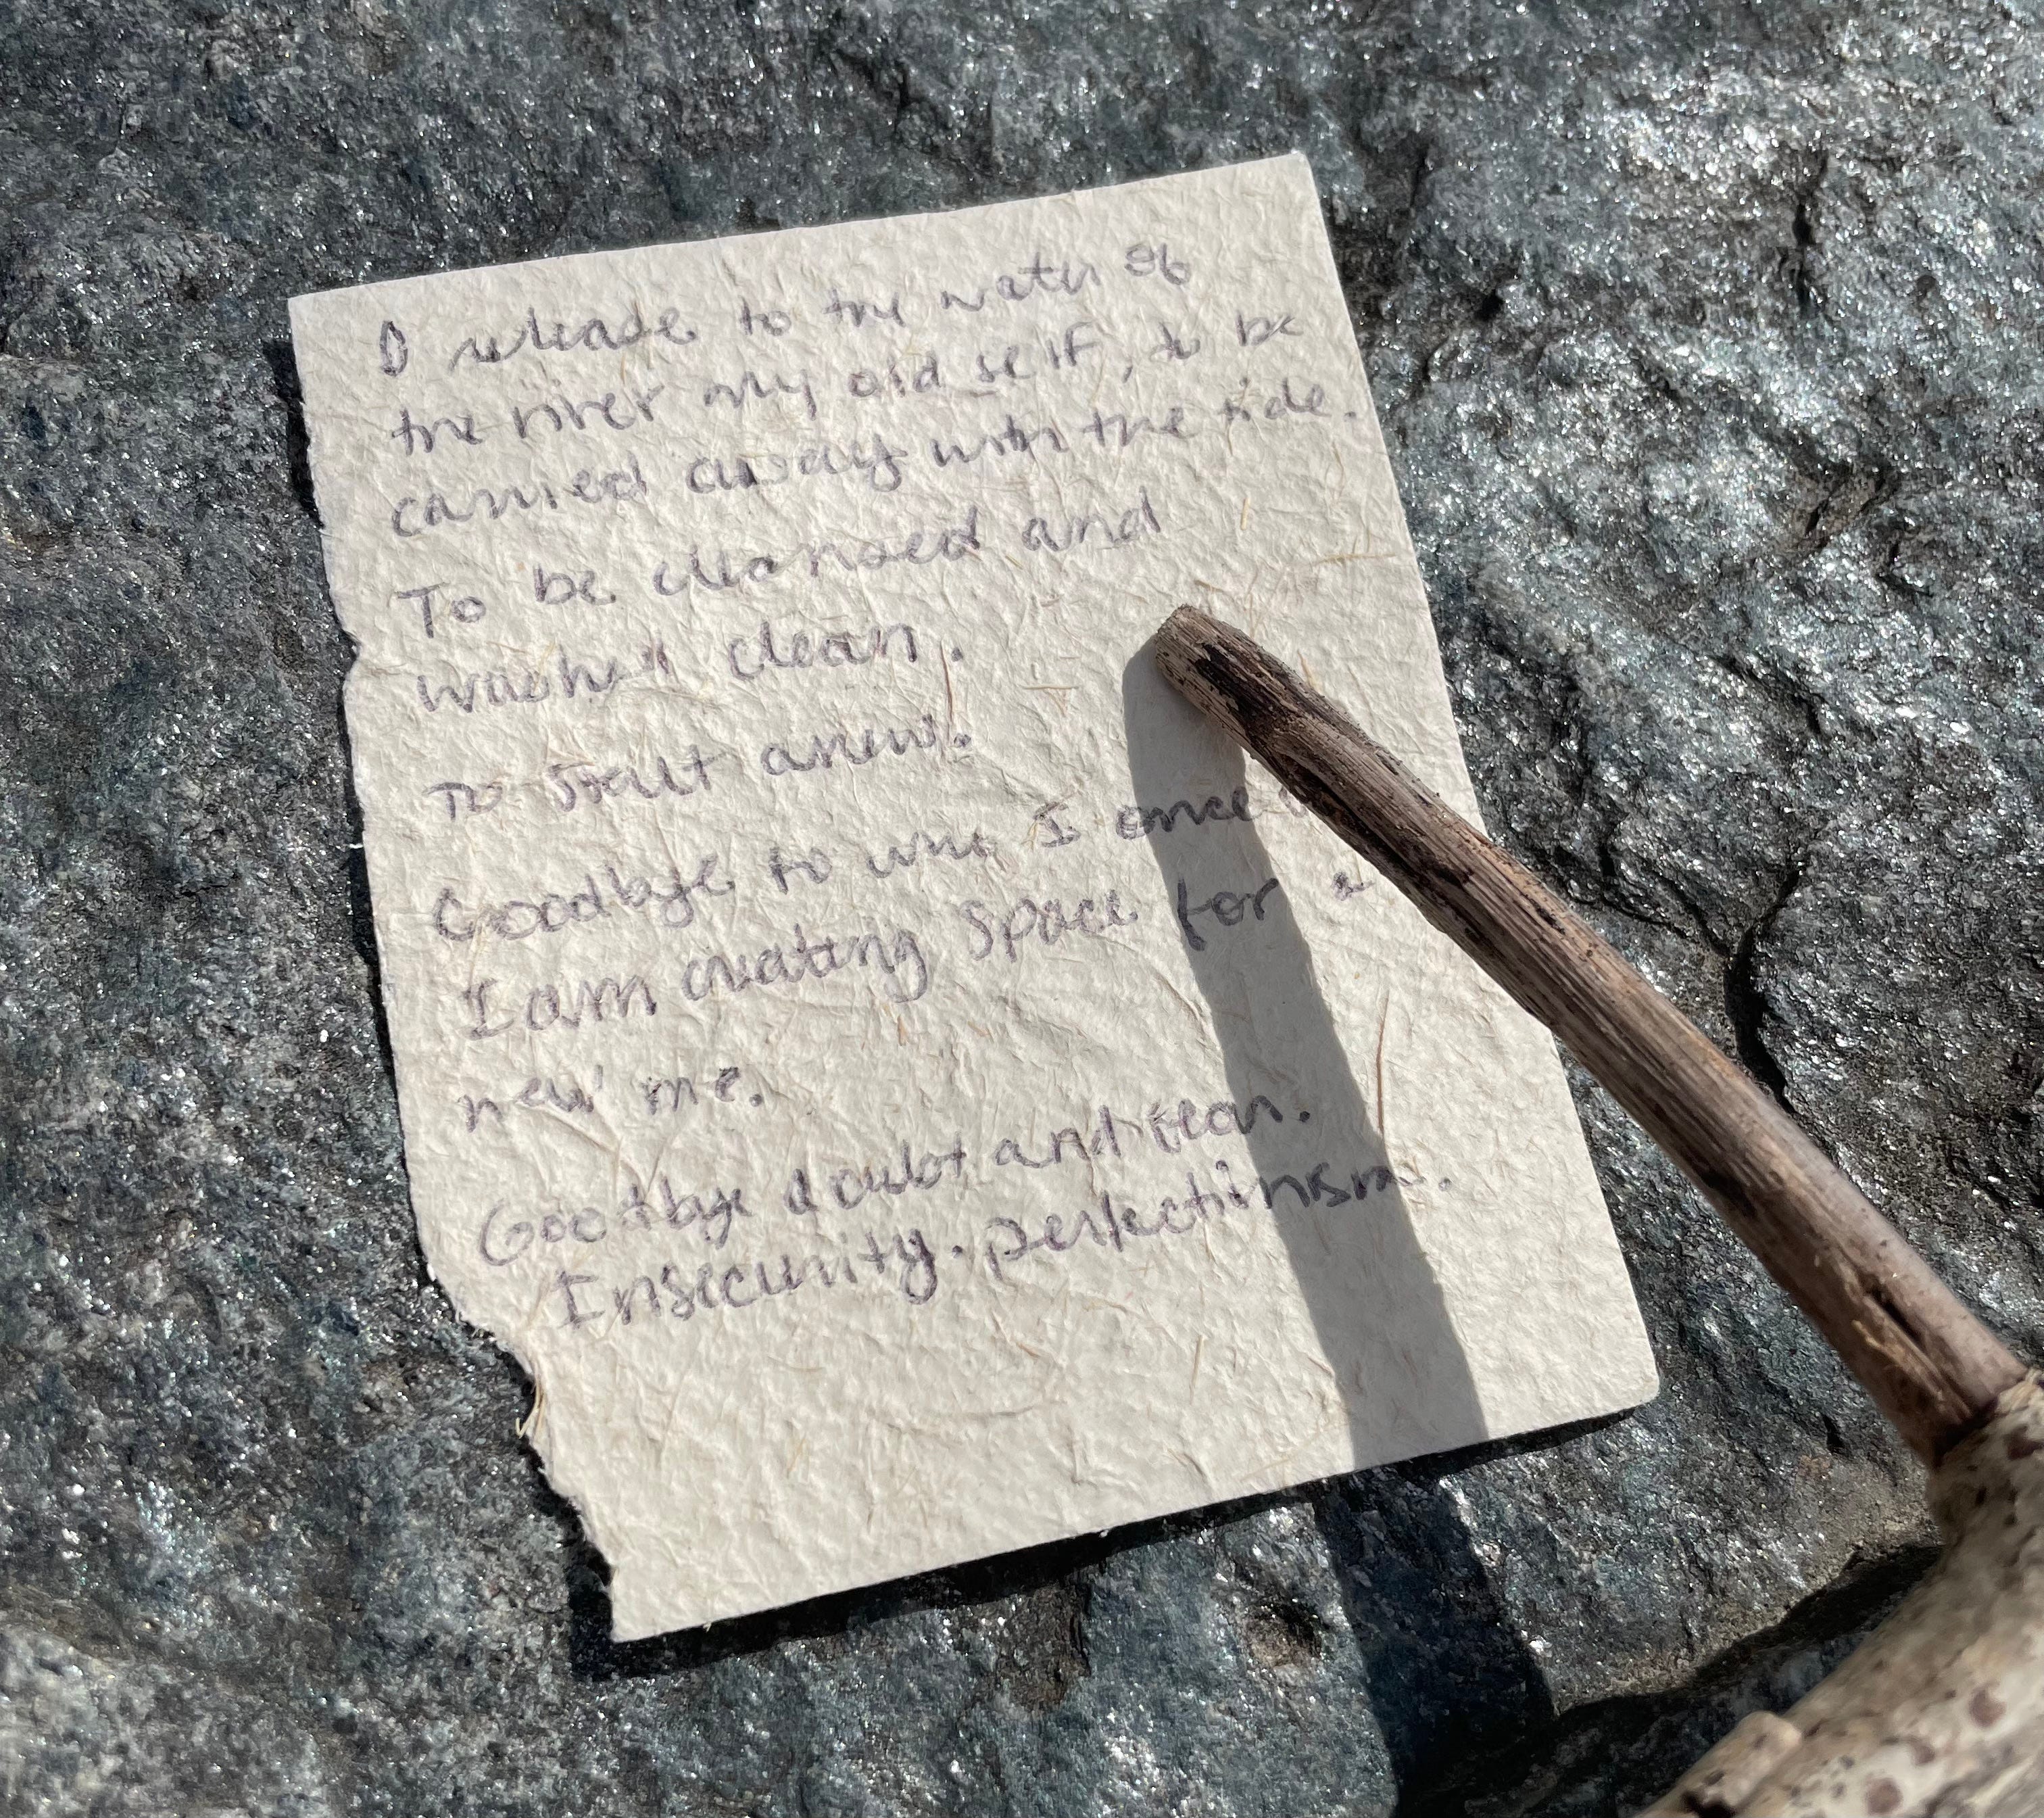 I release to the water of
the river my old self, to be
carried away with the tide.
To be cleansed and
washed clean.
To start anew.
Goodbye to who I once
I am creating space for a
new me.
Goodbye doubt and fear.
Insecurity. perfectionism.